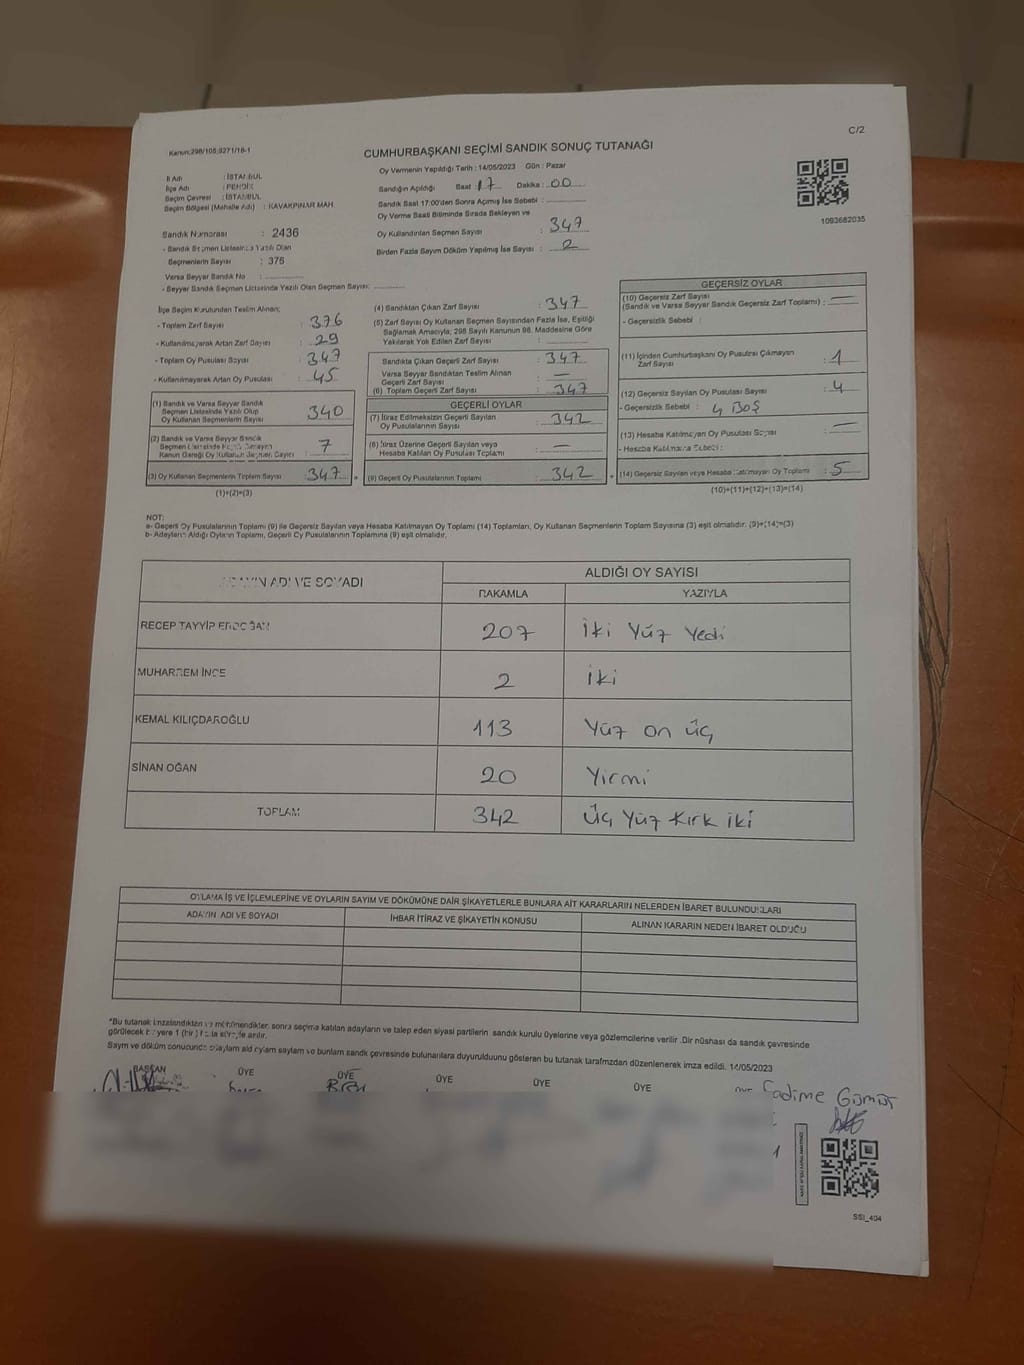 C/2
Kanun:298/105;6271/18-1
CUMHURBAŞKANI SEÇİMİ SANDIK SONUÇ TUTANAĞI
İl Adı : İSTANBUL
İlçe Adı : PENDİK
Seçim Çevresi : İSTANBUL
Seçim Bölgesi (Mahalle Adı) : KAVAKPINAR MAH.
Sandık Numarası : 2436
- Sandık Seçmen Listesinde Yazılı Olan
Seçmenlerin Sayısı : 376
Varsa Seyyar Sandık No :
- Seyyar Sandık Seçmen Listesinde Yazılı Olan Seçmen Sayısı:
Oy Vermenin Yapıldığı Tarih : 14/05/2023 Gün : Pazar
Sandığın Açıldığı Saat : 17 Dakika : 00
Sandık Saat 17:00'den Sonra Açımış İse Sebebi :
Oy Verme Saati Bitiminde Sırada Bekleyen ve
Oy Kullandırılan Seçmen Sayısı : 347
Birden Fazla Sayım Döküm Yapılmış İse Sayısı : 2
1093682035
İlçe Seçim Kurulundan Teslim Alınan;
- Toplam Zarf Sayısı : 376
- Kullanılmayarak Artan Zarf Sayısı : 29
- Toplam Oy Pusulası Sayısı : 347
- Kullanılmayarak Artan Oy Pusulası : 45
(1) Sandık ve Varsa Seyyar Sandık
Seçmen Listesinde Yazılı Olup
Oy Kullanan Seçmenlerin Sayısı : 340
(2) Sandık ve Varsa Seyyar Sandık
Seçmen Listesinde Kayıtlı Olmayan
Kanun Gereği Oy Kullanan Seçmen Sayısı : 7
(3) Oy Kullanan Seçmenlerin Toplam Sayısı : 347
(1)+(2)=(3)
(4) Sandıktan Çıkan Zarf Sayısı : 347
(5) Zarf Sayısı Oy Kullanan Seçmen Sayısından Fazla İse, Eşitliği
Sağlamak Amacıyla; 298 Sayılı Kanunun 98. Maddesine Göre
Yakılarak Yok Edilen Zarf Sayısı :
Sandıkta Çıkan Geçerli Zarf Sayısı : 347
Varsa Seyyar Sandıktan Teslim Alınan
Geçerli Zarf Sayısı : —
(6) Toplam Geçerli Zarf Sayısı : 347
GEÇERLİ OYLAR
(7) İtiraz Edilmeksizin Geçerli Sayılan
Oy Pusulalarının Sayısı : 342
(8) İtiraz Üzerine Geçerli Sayılan veya
Hesaba Katılan Oy Pusulası Toplamı : —
(9) Geçerli Oy Pusulalarının Toplamı : 342
GEÇERSİZ OYLAR
(10) Geçersiz Zarf Sayısı
(Sandık ve Varsa Seyyar Sandık Geçersiz Zarf Toplamı) : —
- Geçersizlik Sebebi :
(11) İçinden Cumhurbaşkanı Oy Pusulası Çıkmayan
Zarf Sayısı : 1
(12) Geçersiz Sayılan Oy Pusulası Sayısı : 4
- Geçersizlik Sebebi : 4 BOŞ
(13) Hesaba Katılmayan Oy Pusulası Sayısı : —
- Hesaba Katılmama Sebebi :
(14) Geçersiz Sayılan veya Hesaba Katılmayan Oy Toplamı : 5
(10)+(11)+(12)+(13)=(14)
NOT:
a- Geçerli Oy Pusulalarının Toplamı (9) ile Geçersiz Sayılan veya Hesaba Katılmayan Oy Toplamı (14) Toplamları, Oy Kullanan Seçmenlerin Toplam Sayısına (3) eşit olmalıdır. (9)+(14)=(3)
b- Adayların Aldığı Oyların Toplamı, Geçerli Oy Pusulalarının Toplamına (9) eşit olmalıdır.
ADAYIN ADI VE SOYADI ALDIĞI OY SAYISI
RAKAMLA YAZIYLA
RECEP TAYYİP ERDOĞAN 207 İki Yüz Yedi
MUHARREM İNCE 2 İki
KEMAL KILIÇDAROĞLU 113 Yüz on üç
SİNAN OĞAN 20 Yirmi
TOPLAM 342 Üç Yüz Kırk iki
OYLAMA İŞ VE İŞLEMLERİNE VE OYLARIN SAYIM VE DÖKÜMÜNE DAİR ŞİKAYETLERLE BUNLARA AİT KARARLARIN NELERDEN İBARET BULUNDUKLARI
ADAYIN ADI VE SOYADI İHBAR İTİRAZ VE ŞİKAYETİN KONUSU ALINAN KARARIN NEDEN İBARET OLDUĞU
*Bu tutanak imzalandıktan ve mühürlendikten sonra seçime katılan adayların ve talep eden siyasi partilerin sandık kurulu üyelerine veya gözlemcilerine verilir .Bir nüshası da sandık çevresinde
görülecek bir yere 1 (bir) hafta süreyle asılır.
Sayım ve döküm sonucunda adayların aldıkları oyların sayısını ve bunların sandık çevresinde bulunanlara duyurulduunu gösteren bu tutanak tarafımızdan düzenlenerek imza edildi. 14/05/2023
BAŞKAN ÜYE ÜYE ÜYE ÜYE ÜYE
nur Fadime Gümüş
SSI_404